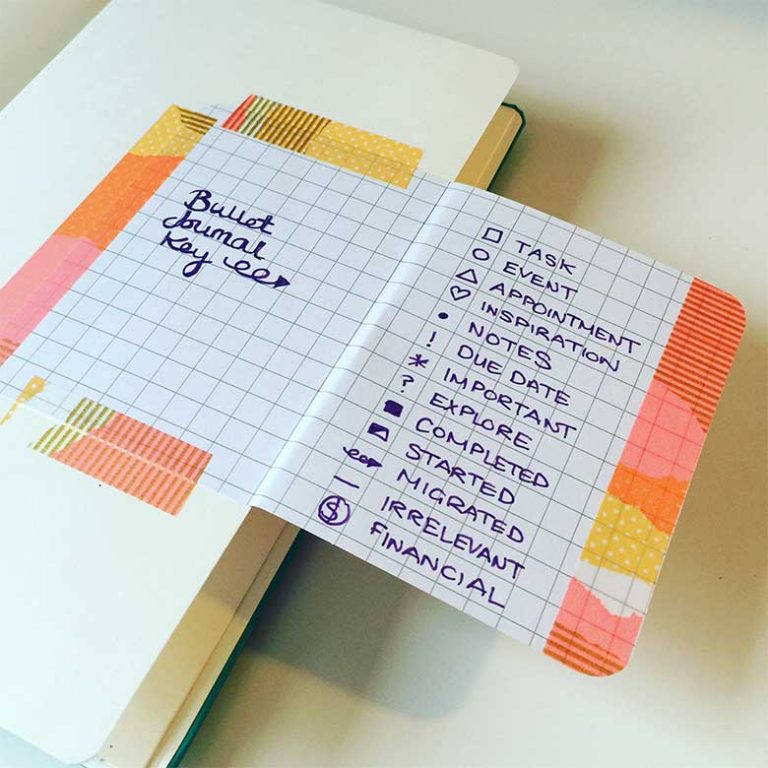 Bullet
Journal
Key
TASK
EVENT
APPOINTMENT
INSPIRATION
NOTES
! DUE DATE
* IMPORTANT
? EXPLORE
COMPLETED
STARTED
MIGRATED
— IRRELEVANT
$ FINANCIAL